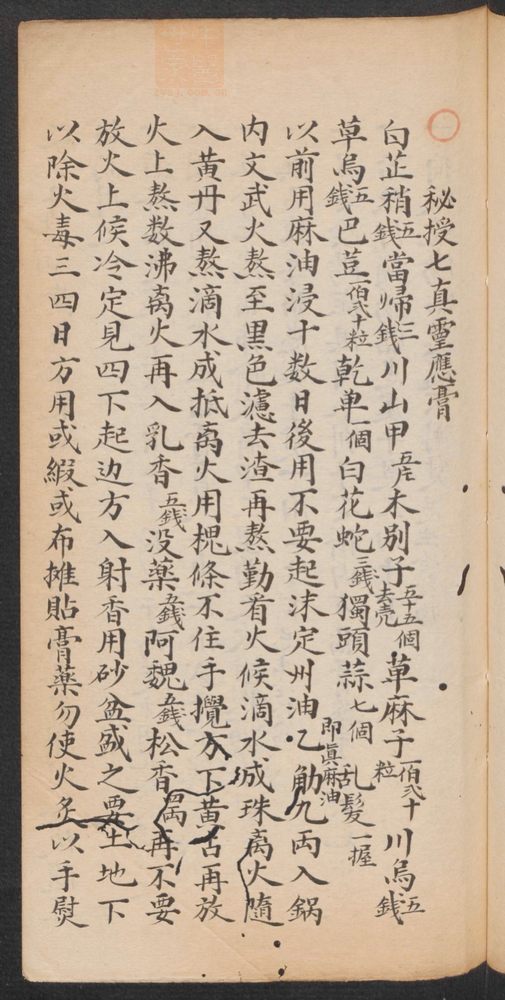 秘授七真靈應膏
白芷稍五錢當歸三錢川山甲五片木別子五十五個去壳草麻子一佰弍十粒川烏五錢
草烏五錢巴荳一佰弍十粒乾单一個白花蛇三錢獨頭蒜七個乱髮一握
以前用麻油浸十数日後用不要起沫定州油即真麻油乙觔九両入鍋
内文武火熬至黒色濾去渣再熬勤看火候滴水成珠离火隨
入黄丹又熬滴水成抵离火用槐條不住手攪方下黄占再放
火上熬数沸离火再入乳香五錢没藥五錢阿魏五錢松香両再不要
放火上候冷定見四下起边方入射香用砂盆盛之要土地下
以除火毒三四日方用或緞或布摊貼膏藥勿使火炙以手熨